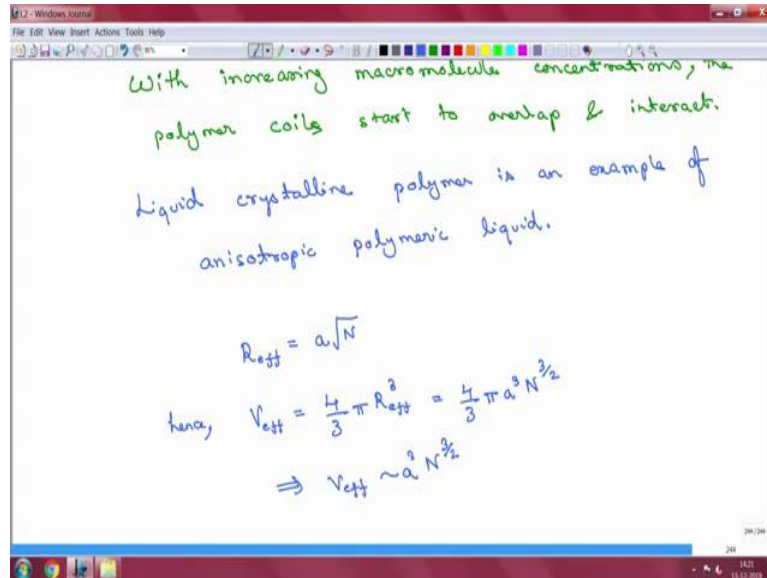 L12 - Windows Journal
File Edit View Insert Actions Tools Help
With increasing macromolecule concentrations, the
polymer coils start to overlap & interact.
Liquid crystalline polymer is an example of
anisotropic polymeric liquid.
R_eff = a√N
hence, V_eff = 4/3 π R_eff^3 = 4/3 π a^3 N^3/2
⇒ V_eff ~ a^3 N^3/2
244/244
244
14:21
13-12-2019